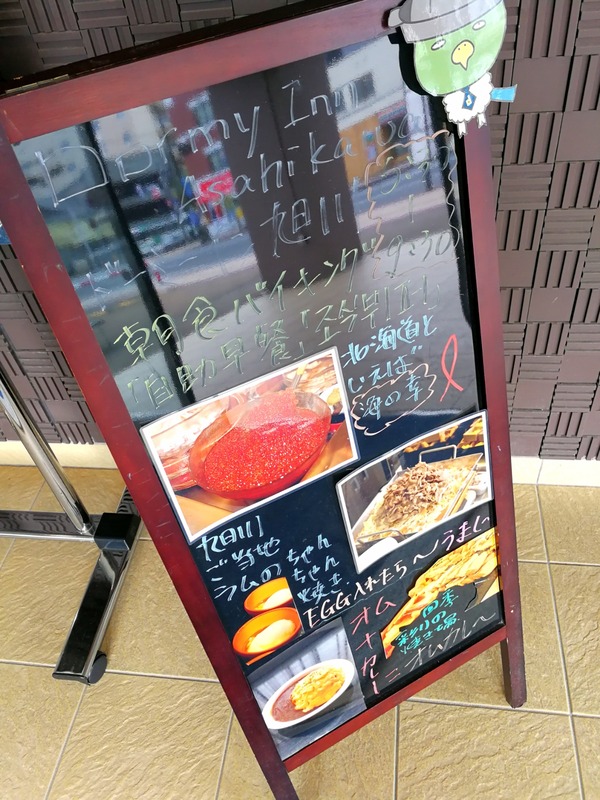 Dormy Inn
Asahikawa
ドーミーイン 旭川
朝食バイキング
「自助早餐」조식뷔페
北海道と
いえば
海の幸
旭川
ご当地
ラムの
ちゃん
ちゃん
焼き
EGG入れたら～うまし
オム
＋
カレー
＝オムカレ～
四季
彩りの
焼き場